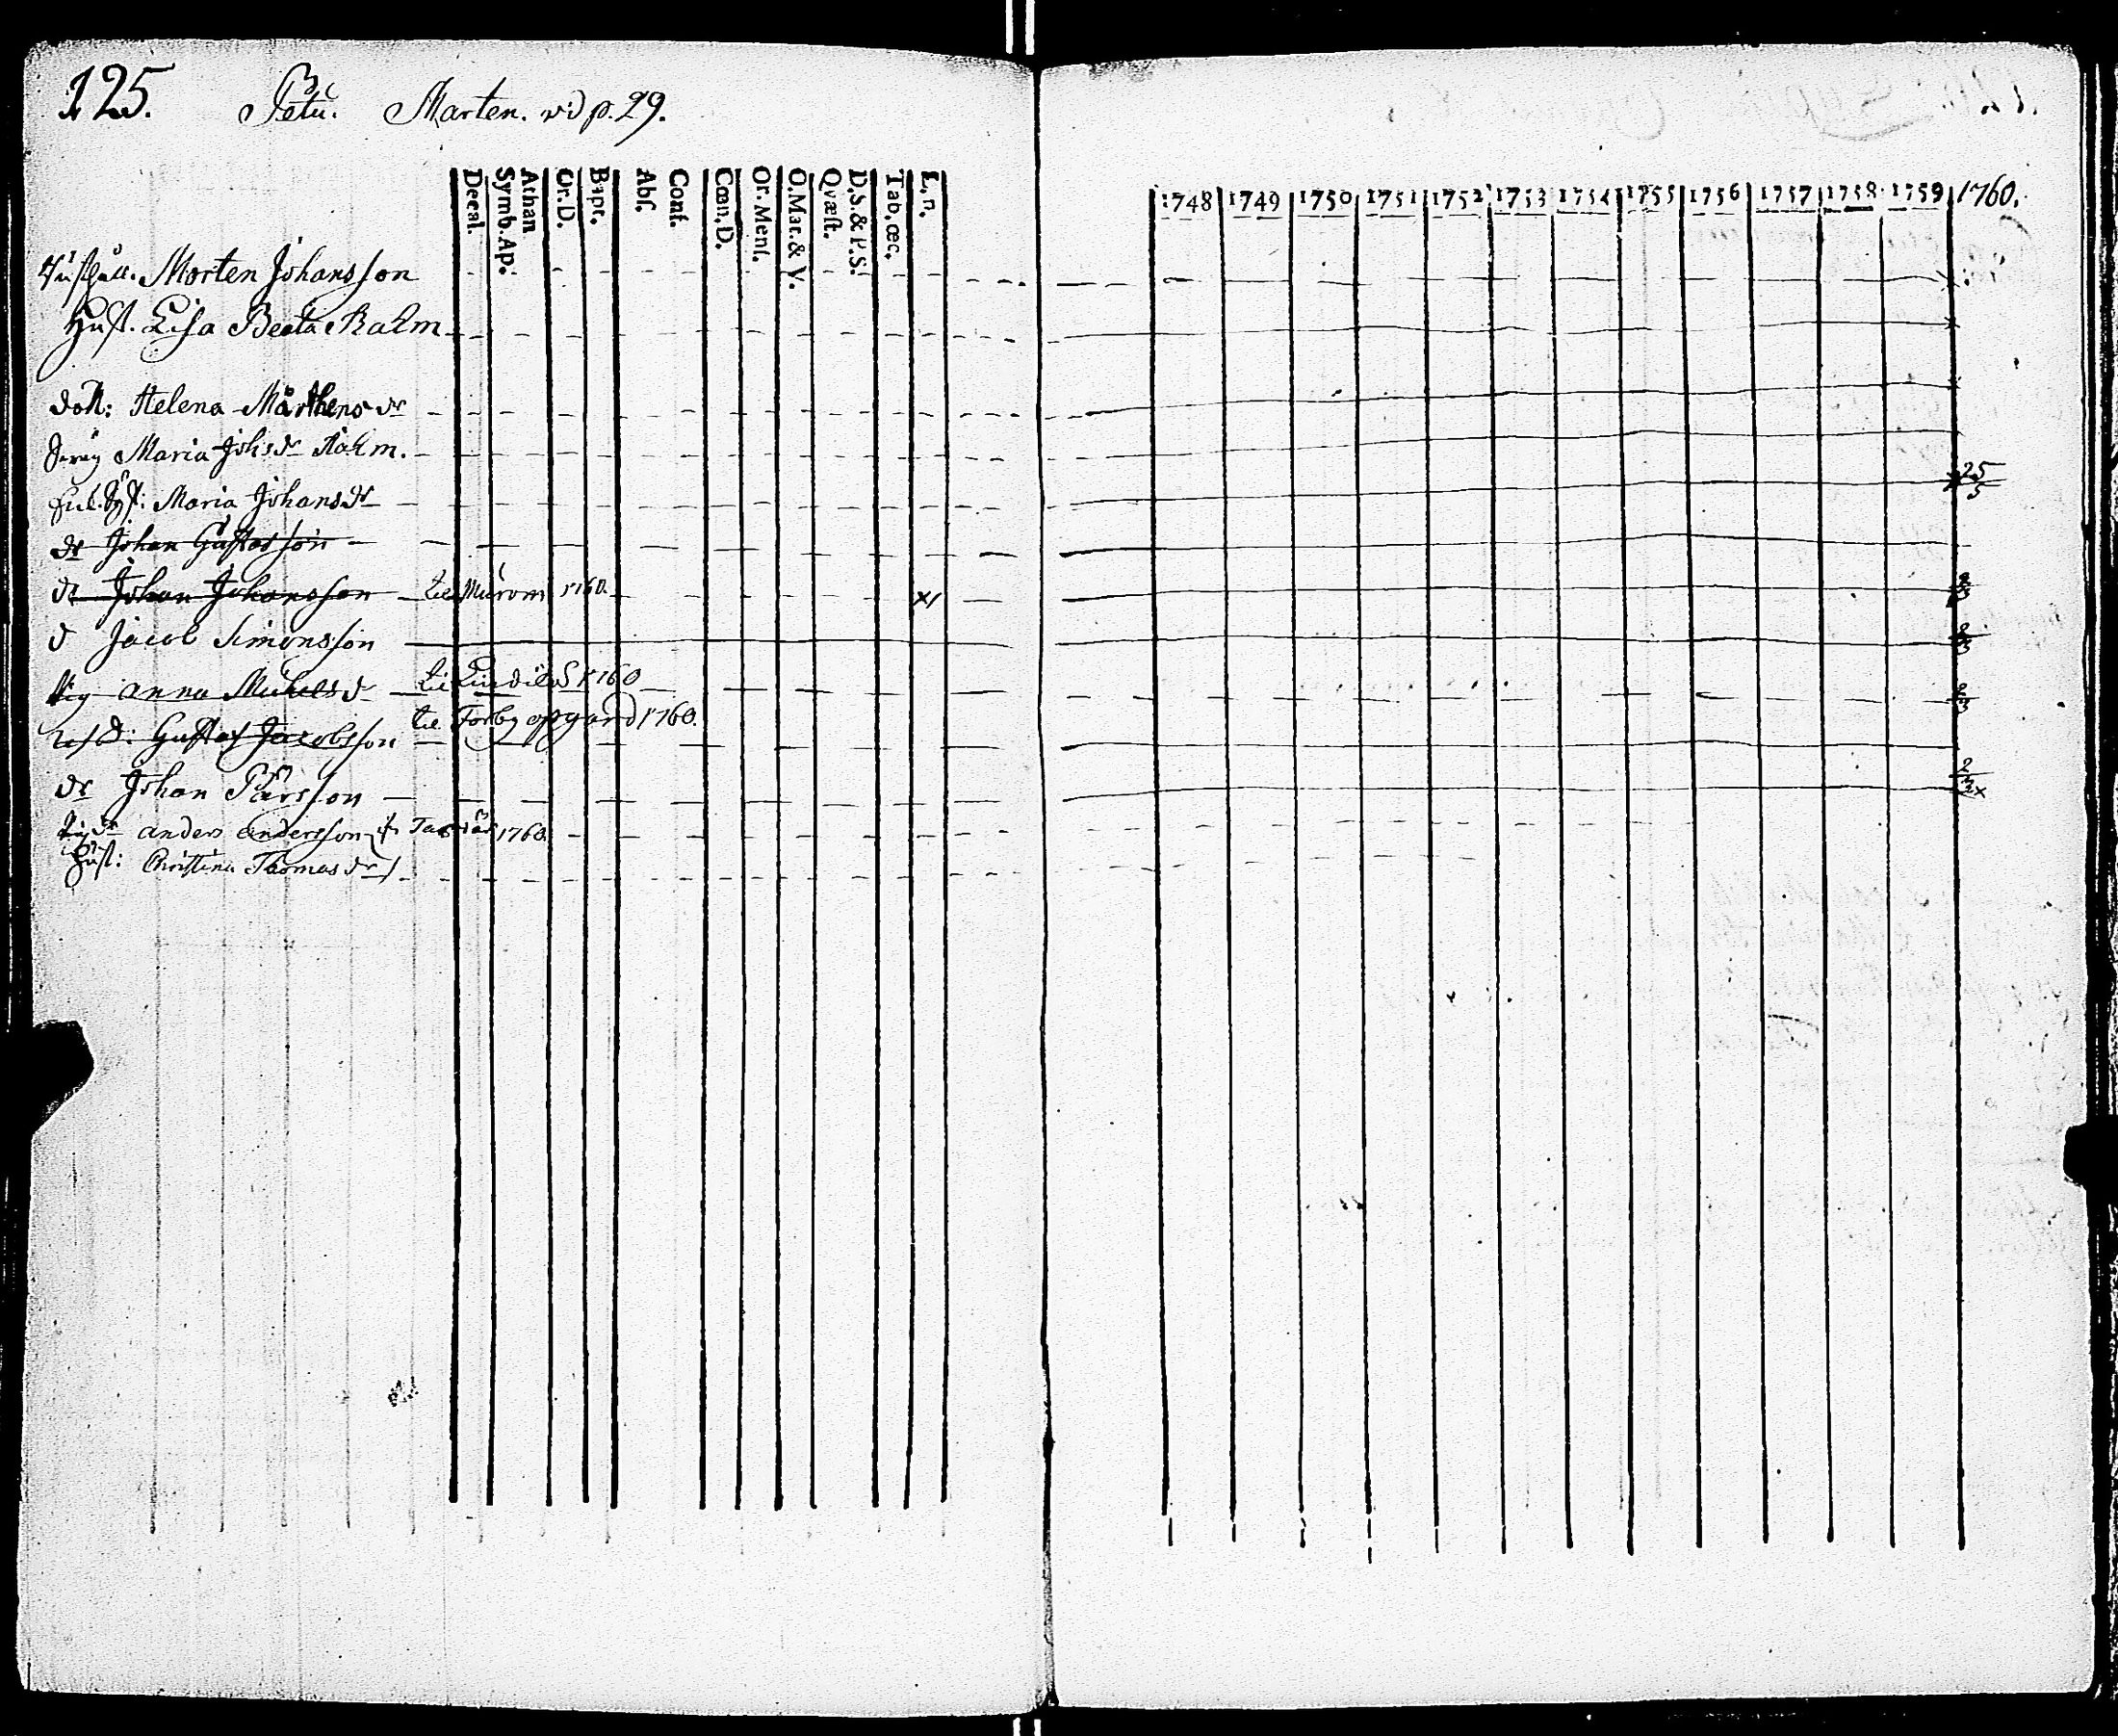 125. Petu. Marten. vid p. 29.
Decal. Symb. Ap. Athan Or. D. Bapt. Abſ. Conf. Cœn. D. Or. Menſ. O. Mat. & V. Qvæſt. D. S. & P. S. Tab. œc. L. n.
1748 1749 1750 1751 1752 1753 1754 1755 1756 1757 1758 1759 1760.
Morten Johansson
Huſt. Lisa Beata Kalm
dott: Helena Mårthens dr
Maria Johs dr Kalm.
Maria Johans dr 25/5
dr Johan Gustafsson
dr Johan Johansson til Murom 1760. x/ 2/3
d Jacob Simonsson 2/3
Pig anna Michels dr til 1760 2/3
d: Gustaf Jacobsson til Forby opgård 1760.
dr Johan Pärsson 2/3x
anders andersson 1760.
Hust: Christina Thomas dr